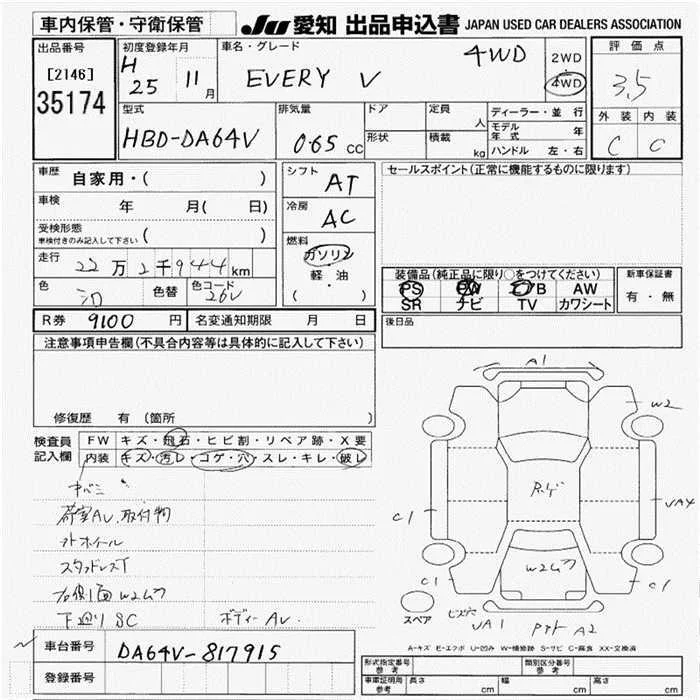 車内保管・守衛保管
JU 愛知 出品申込書 JAPAN USED CAR DEALERS ASSOCIATION
出品番号
[2146]
35174
初度登録年月
H 25 11月
車名・グレード
EVERY V 4WD
2WD
4WD
評価点
3.5
外装 内装
C C
型式
HBD-DA64V
排気量
065 CC
ドア
形状
定員 人
積載 kg
ディーラー・並行
モデル年式 年
ハンドル 左・右
車歴 自家用・( )
車検 年 月( 日)
受検形態
車検付きのみ記入して下さい ( )
走行 22万2千944km
色 シロ 色替 色コード 26U
シフト
AT
冷房
AC
燃料
ガソリン
軽・油
( )
セールスポイント(正常に機能するものに限ります)
装備品(純正品に限り○をつけてください)
PS PW エアB AW
SR ナビ TV カワシート
新車保証書
有・無
R券 9100 円 名変通知期限 月 日
後日品
注意事項申告欄(不具合内容等は具体的に記入して下さい)
修復歴 有(箇所 )
検査員記入欄
FW キズ・飛石・ヒビ割・リペア跡・X要
内装 キズ・汚レ・コゲ・穴・スレ・キレ・破レ
荷室AU、取付判
外ホイール
スタッドレスT
右側面W2ム
下廻りSC ボディーAU
A1
W2
ルーゲ
C1
UA4
W2ム
C1
C1
スペア
ビズ穴
UA1
A2
A-キズ E-エクボ U-凹み W-補修跡 S-サビ C-腐食 XX-交換済
車台番号 DA64V-817915
登録番号
形式指定番号 参考 類別区分番号 参考
車庫証明局 参考 長さ cm 幅 cm 高さ cm